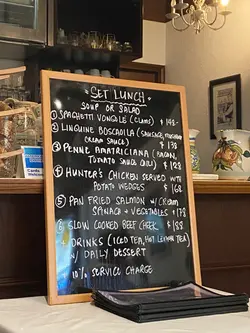 SET LUNCH
SOUP OR SALAD
① SPAGHETTI VONGOLE (CLAMS) $148-
② LINGUINE BOSCAOILA (SAUSAGE, MUSHROOM
CREAM SAUCE) $138
③ PENNE AMATRICIANA (BACON,
TOMATO SAUCE, CHILI) $128
④ HUNTER'S CHICKEN SERVED WITH
POTATO WEDGES $168
⑤ PAN FRIED SALMON W/ CREAM
SPINACH + VEGETABLES $178
⑥ SLOW COOKED BEEF CHEEK $188
DRINKS (ICED TEA, HOT LEMON TEA)
W/ DAILY DESSERT
10% SERVICE CHARGE
VISA
Cards
Welcome